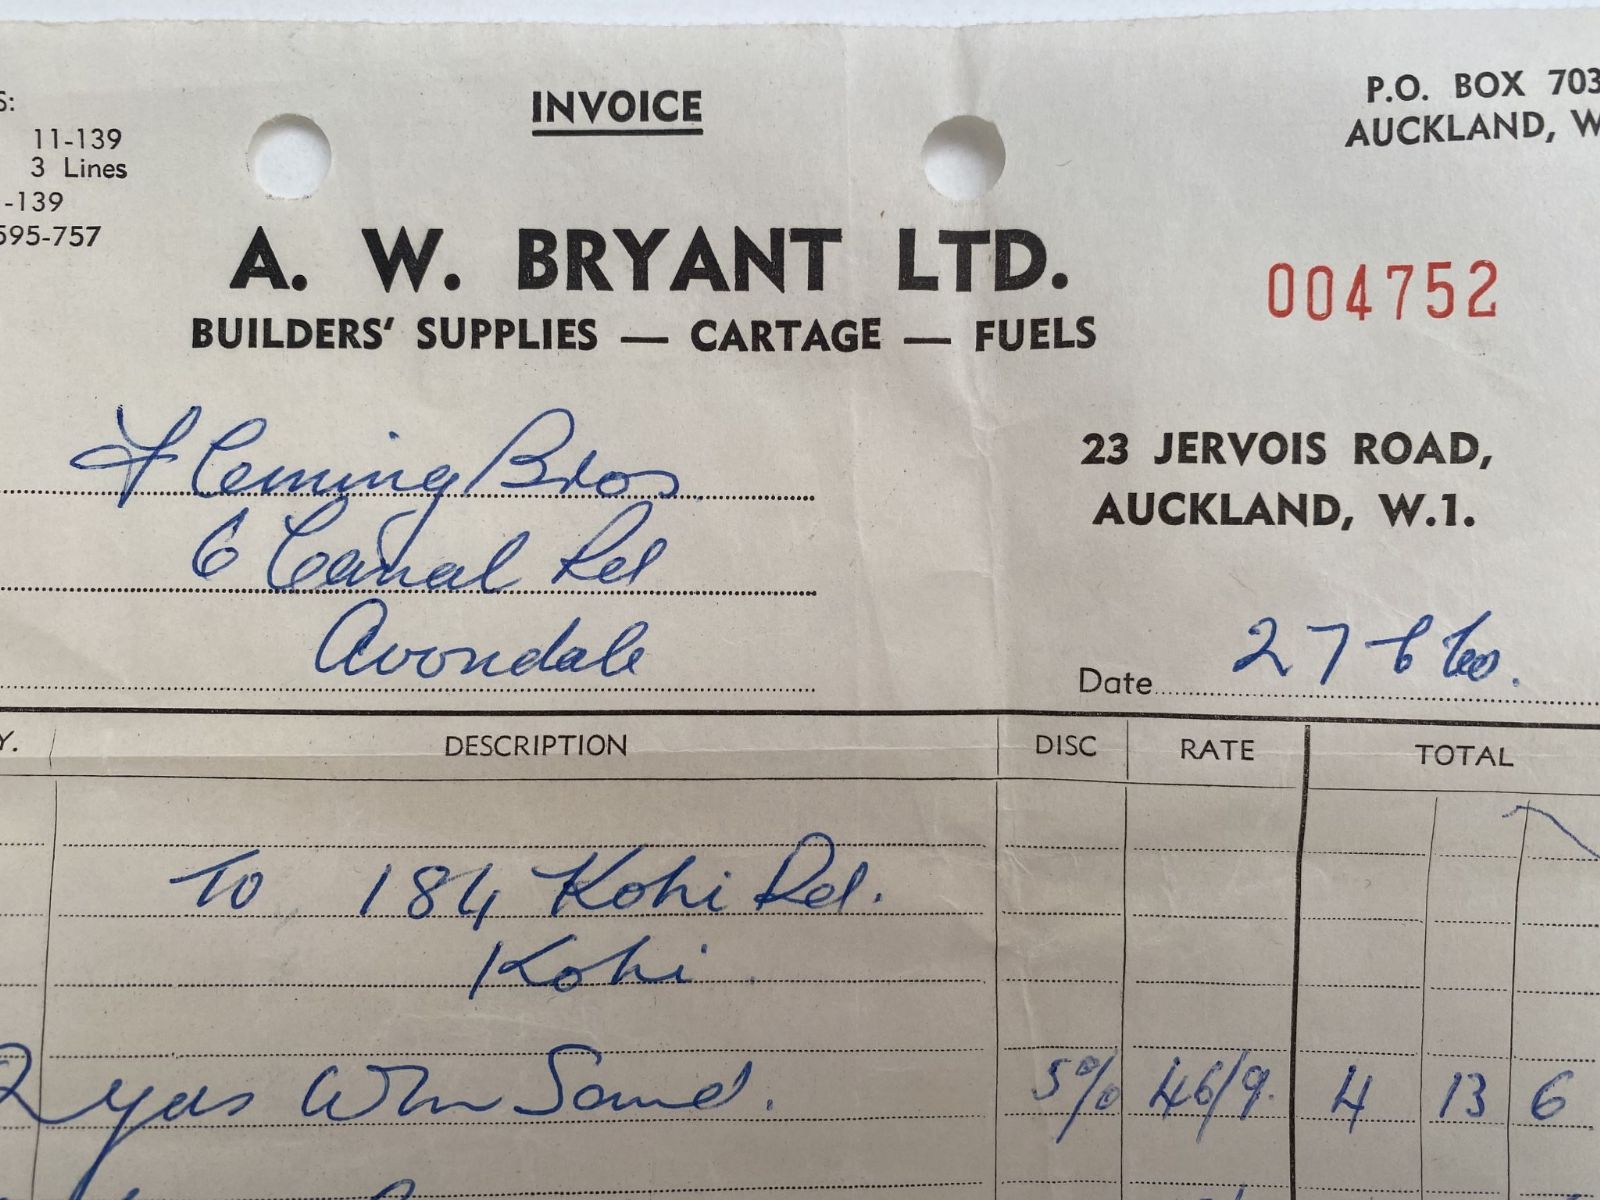 S:
11-139
3 Lines
-139
595-757
INVOICE
P.O. BOX 703
AUCKLAND, W
A. W. BRYANT LTD.
BUILDERS' SUPPLIES — CARTAGE — FUELS
004752
23 JERVOIS ROAD,
AUCKLAND, W.1.
Fleming Bros.
6 Canal Rd
Avondale
Date 27 6
Y. DESCRIPTION DISC RATE TOTAL
To 184 Kohi Rd.
Kohi.
2 yds Sand. 5% 46/9. 4 13 6